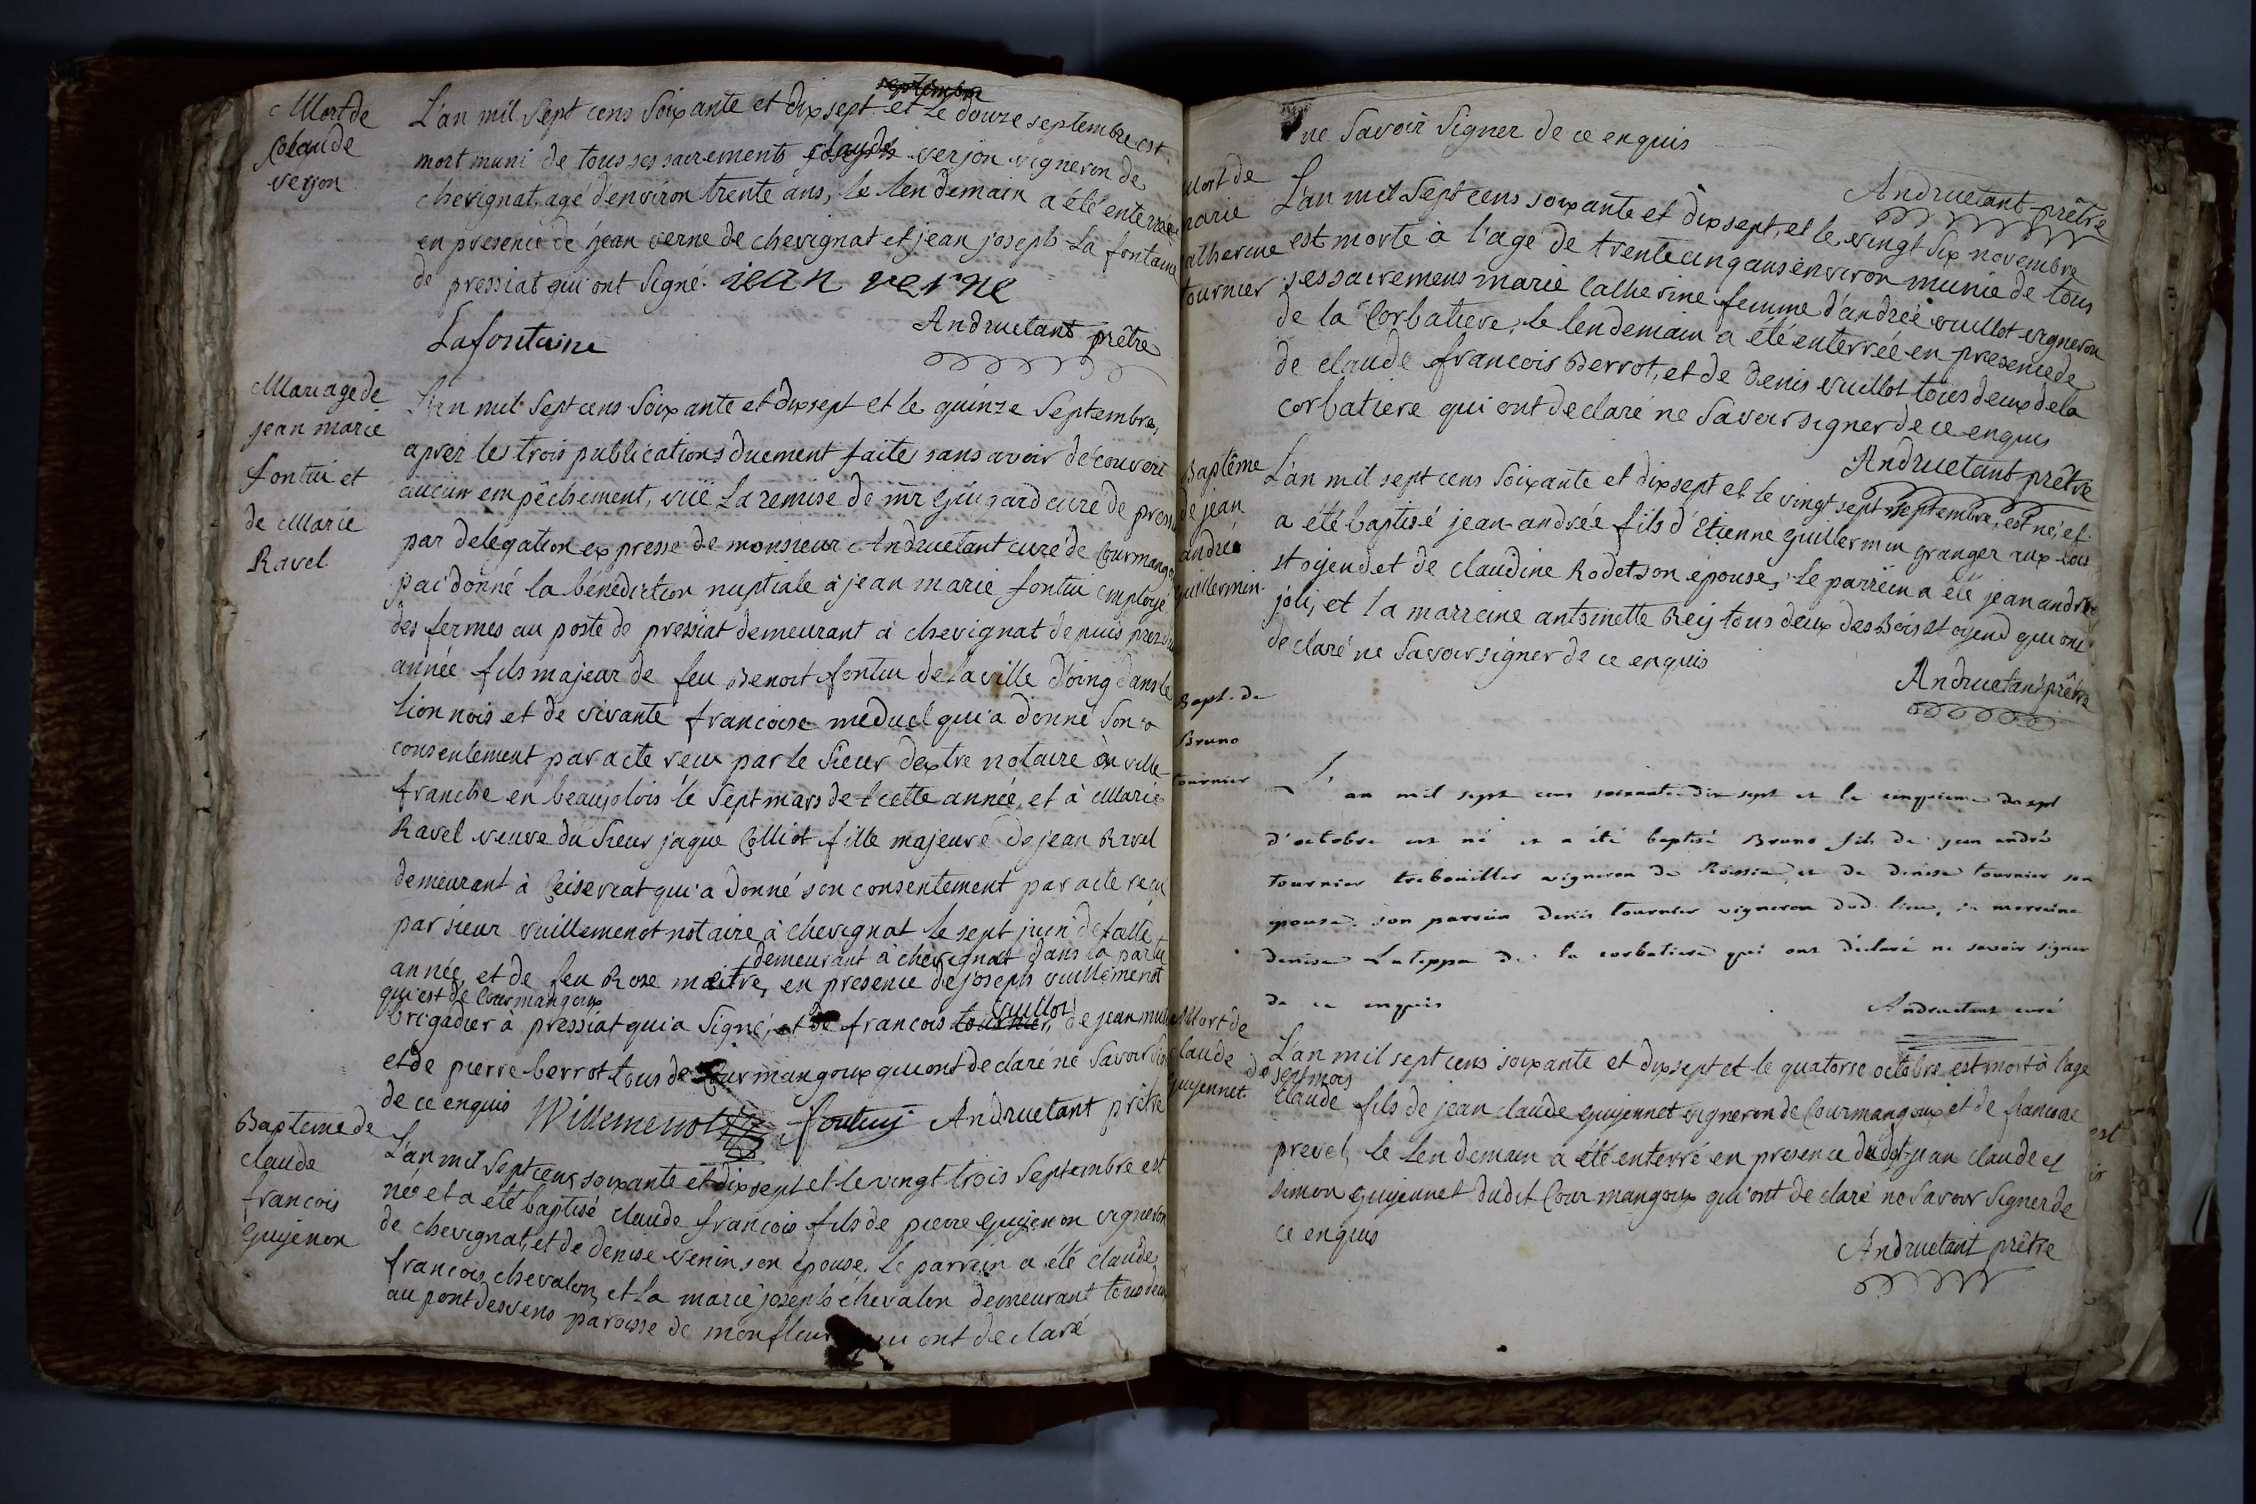 Mort de
Claude
verjon
septembre
L'an mil sept cens soixante et dix sept et le douze septembre est
mort muni de tous ses sacrements claude verjon vigneron de
chevignat, agé d'environ trente ans, le lendemain a été enterré
en presence de jean verne de chevignat et jean joseph La fontaine
de pressiat qui ont signé. jean verne
Lafontaine
Andruetant prêtre
Mariage de
jean marie
fontui et
de Marie
Ravel
L'an mil sept cens soixante et dix sept et le quinze septembre,
aprez les trois publications duement faites sans avoir découvert
aucun empêchement, vuë La remise de mr Guigard curé de pressi
par delegation expresse de monsieur Andruetant curé de Courmango
j'ai donné la bénédiction nuptiale à jean marie fontui employé
des fermes au poste de pressiat demeurant à chevignat depuis prez d'un
année fils majeur de feu Benoit fontui de la ville d'oing dans le
lionnois et de vivante francoise meduel qui a donné son
consentement par acte recu par le sieur dextre notaire à ville
franche en beaujolois le sept mars de cette année, et à Marie
Ravel veuve du sieur jaque Colliot fille majeure de jean Ravel
demeurant à Ceiseriat qui a donné son consentement par acte recu
par sieur vuillemenot notaire à chevignat le sept juin de cette
demeurant à chevignat dans la partie
année, et de feu Rose maitre, en presence de joseph vuillemenot
qui est de Courmangoux
brigadier à pressiat qui a signé, et de francois tournier, vuillot de jean
et de pierre berrot tous de Courmangoux qui ont declaré ne savoir
de ce enquis Willemenot fontuy Andruetant prêtre
Bapteme de
claude
francois
Guyenon
L'an mil sept cens soixante et dix sept et le vingt trois septembre est
né et a été baptisé claude francois fils de pierre Guyenon vigneron
de chevignat, et de denise venin son epouse. Le parrein a été claude
francois chevalon, et la marie joseph chevalon demeurant tous deux
au pont desvens paroisse de monfleur qui ont declaré
ne savoir signer de ce enquis
Andruetant prêtre
Mort de
marie
catherine
tournier
L'an mil sept cens soixante et dix sept, et le vingt six novembre
est morte à l'age de trente cinq ans environ munie de tous
ses sacremens marie catherine femme d'andrée vuillot vigneron
de la Corbatiere, le lendemain a été enterrée en presence de
de claude francois Berrot, et de Denis vuillot tous deux de la
corbatiere qui ont declaré ne savoir signer de ce enquis
Andruetant prêtre
Baptême
de jean
andrée
guillermin
L'an mil sept cens soixante et dix sept et le vingt sept septembre, est né, et
a été baptisé jean andrée fils d'Etienne guillermin granger aux bois
st oyend et de claudine Rodet son epouse, le parrein a été jean andrée
joli, et la marreine antoinette Rey tous deux des Bois st oyend qui ont
declaré ne savoir signer de ce enquis
Andruetant prêtre
Bapt. de
Bruno
tournier
L'an mil sept cens soixante dix sept et le cinquieme
d'octobre est né et a été baptisé Bruno fils de jean andré
tournier trebouillet vigneron de Roissia, et de denise tournier son
epouse. son parrein denis tournier vigneron dud. lieu, sa marreine
denise Lateppe de la corbatiere qui ont déclaré ne savoir signer
de ce enquis
Andruetant curé
Mort de
claude
guyennet
L'an mil sept cens soixante et dix sept et le quatorse octobre est mort à l'age
de sept mois
claude fils de jean claude guyennet vigneron de Courmangoux et de francoise
prevel, le lendemain a été enterré en presence dudit jean claude et
simon guyennet dudit Courmangoux qui ont declaré ne savoir signer de
ce enquis
Andruetant prêtre